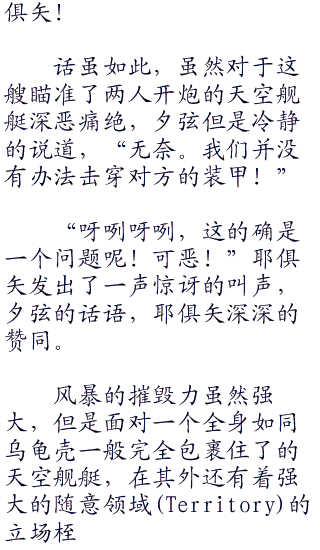 俱矢！
话虽如此，虽然对于这
艘瞄准了两人开炮的天空舰
艇深恶痛绝，夕弦但是冷静
的说道，“无奈。我们并没
有办法击穿对方的装甲！”
“呀咧呀咧，这的确是
一个问题呢！可恶！”耶俱
矢发出了一声惊讶的叫声，
夕弦的话语，耶俱矢深深的
赞同。
风暴的摧毁力虽然强
大，但是面对一个全身如同
乌龟壳一般完全包裹住了的
天空舰艇，在其外还有着强
大的随意领域(Territory)的
立场桎